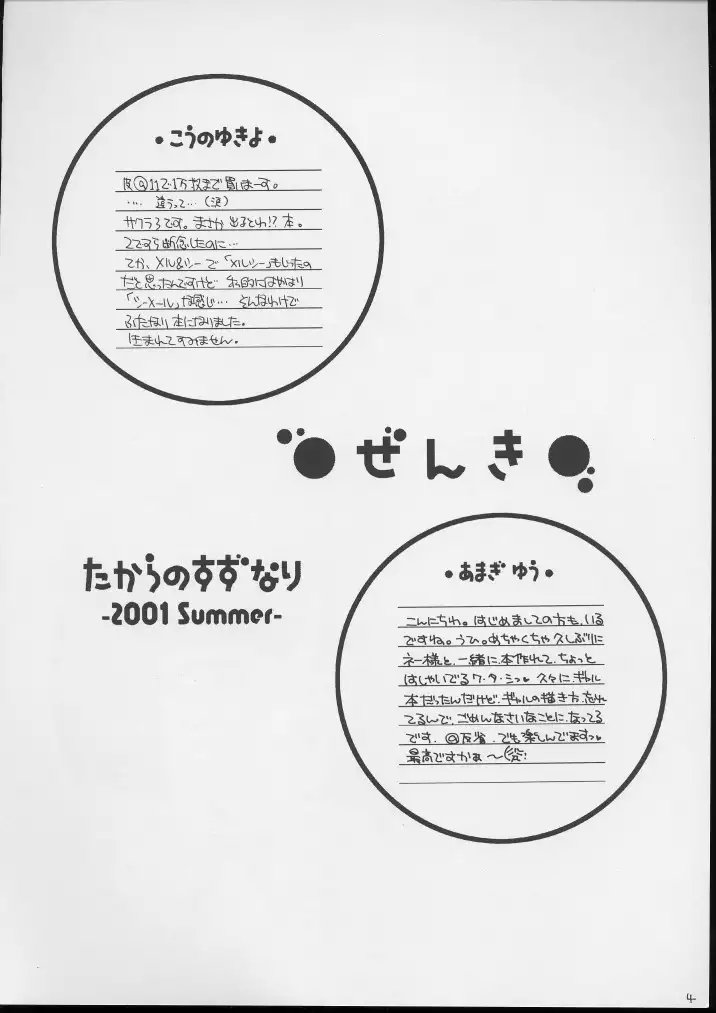 • こうのゆきよ •
まで買いまーす。
…. 違うって…（涙）
サクラ3です。まさか出るとわ!?本。
2ですら断念したのに…
てか、メル&シーで「メルシー」もじったの
だと思ったんですけど 私的にはやはり
「シーメール」な感じ… そんなわけで
ふたなり本になりました。
生まれてすみません。
ぜんき
たからのすずなり
-2001 Summer-
• あまぎ ゆう •
こんにちわ。はじめましての方も、いる
ですね。うひ。めちゃくちゃ久しぶりに
ネー様と、一緒に、本作れて、ちょっと
はしゃいでるワ・タ・シっ♥ 久々にギャル
本だったんだけど、ギャルの描き方、忘れ
てるんで、ごめんなさいなことに、なってる
です。@反省、でも楽しんでますっ♥
最高ですかぁ〜
4